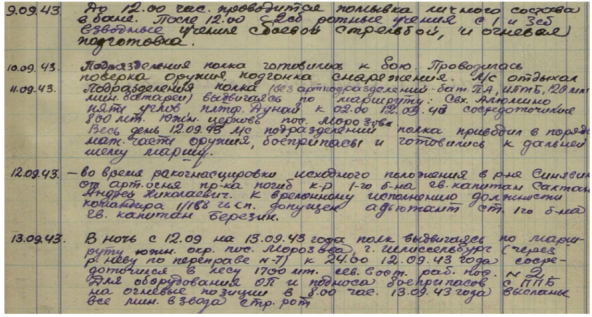 9.09.43. До 12.00 час. проводится помывка личного состава
в бане. После 12.00 с 2сб ротные учения с 1 и 3сб
взводные учения с боевой стрельбой, и огневая
подготовка.
10.09.43. Подразделения полка готовились к бою. Проводилась
поверка оружия, подгонка снаряжения. Л/с отдыхал
11.09.43. Подразделения полка (без артподразделений - бат. ПА, ИПТБ, 120 мм
мин. батареи) выдвигаясь по маршруту: Свх. Аполлино
пяту углов, платф. Дунай к 02.00 12.09.43 сосредоточение
800 мт. южн. церковь пос. Морозова
Весь день 12.09.43 л/с подразделений полка приводил в порядок
мат. части оружия, боеприпасы и готовились к дальней
шему маршу.
12.09.43. - во время рекогнасцировки исходного положения в р-не Синявин
от арт. огня пр-ка погиб к-р 1-го б-на гв. капитан
Андрей Николаевич. К временному исполнению должности
командира 1/188 гв. сп. допущен адъютант ст. 1го б-на
гв. капитан Березин.
13.09.43. В ночь с 12.09 на 13.09.43 года полк выдвигаясь по марш-
руту южн. окр. пос. Морозова, г. Шлиссельбург (через
р. Неву по переправе N-7) к 24.00 12.09.43 года сосре-
доточился в лесу 1700 мт. сев. вост. раб. пос. N 2
Для оборудования ОП и подноса боеприпасов с ППБ
на огневые позиции в 8.00 час. 13.09.43 года высланы
все мин. взвода стр. рот